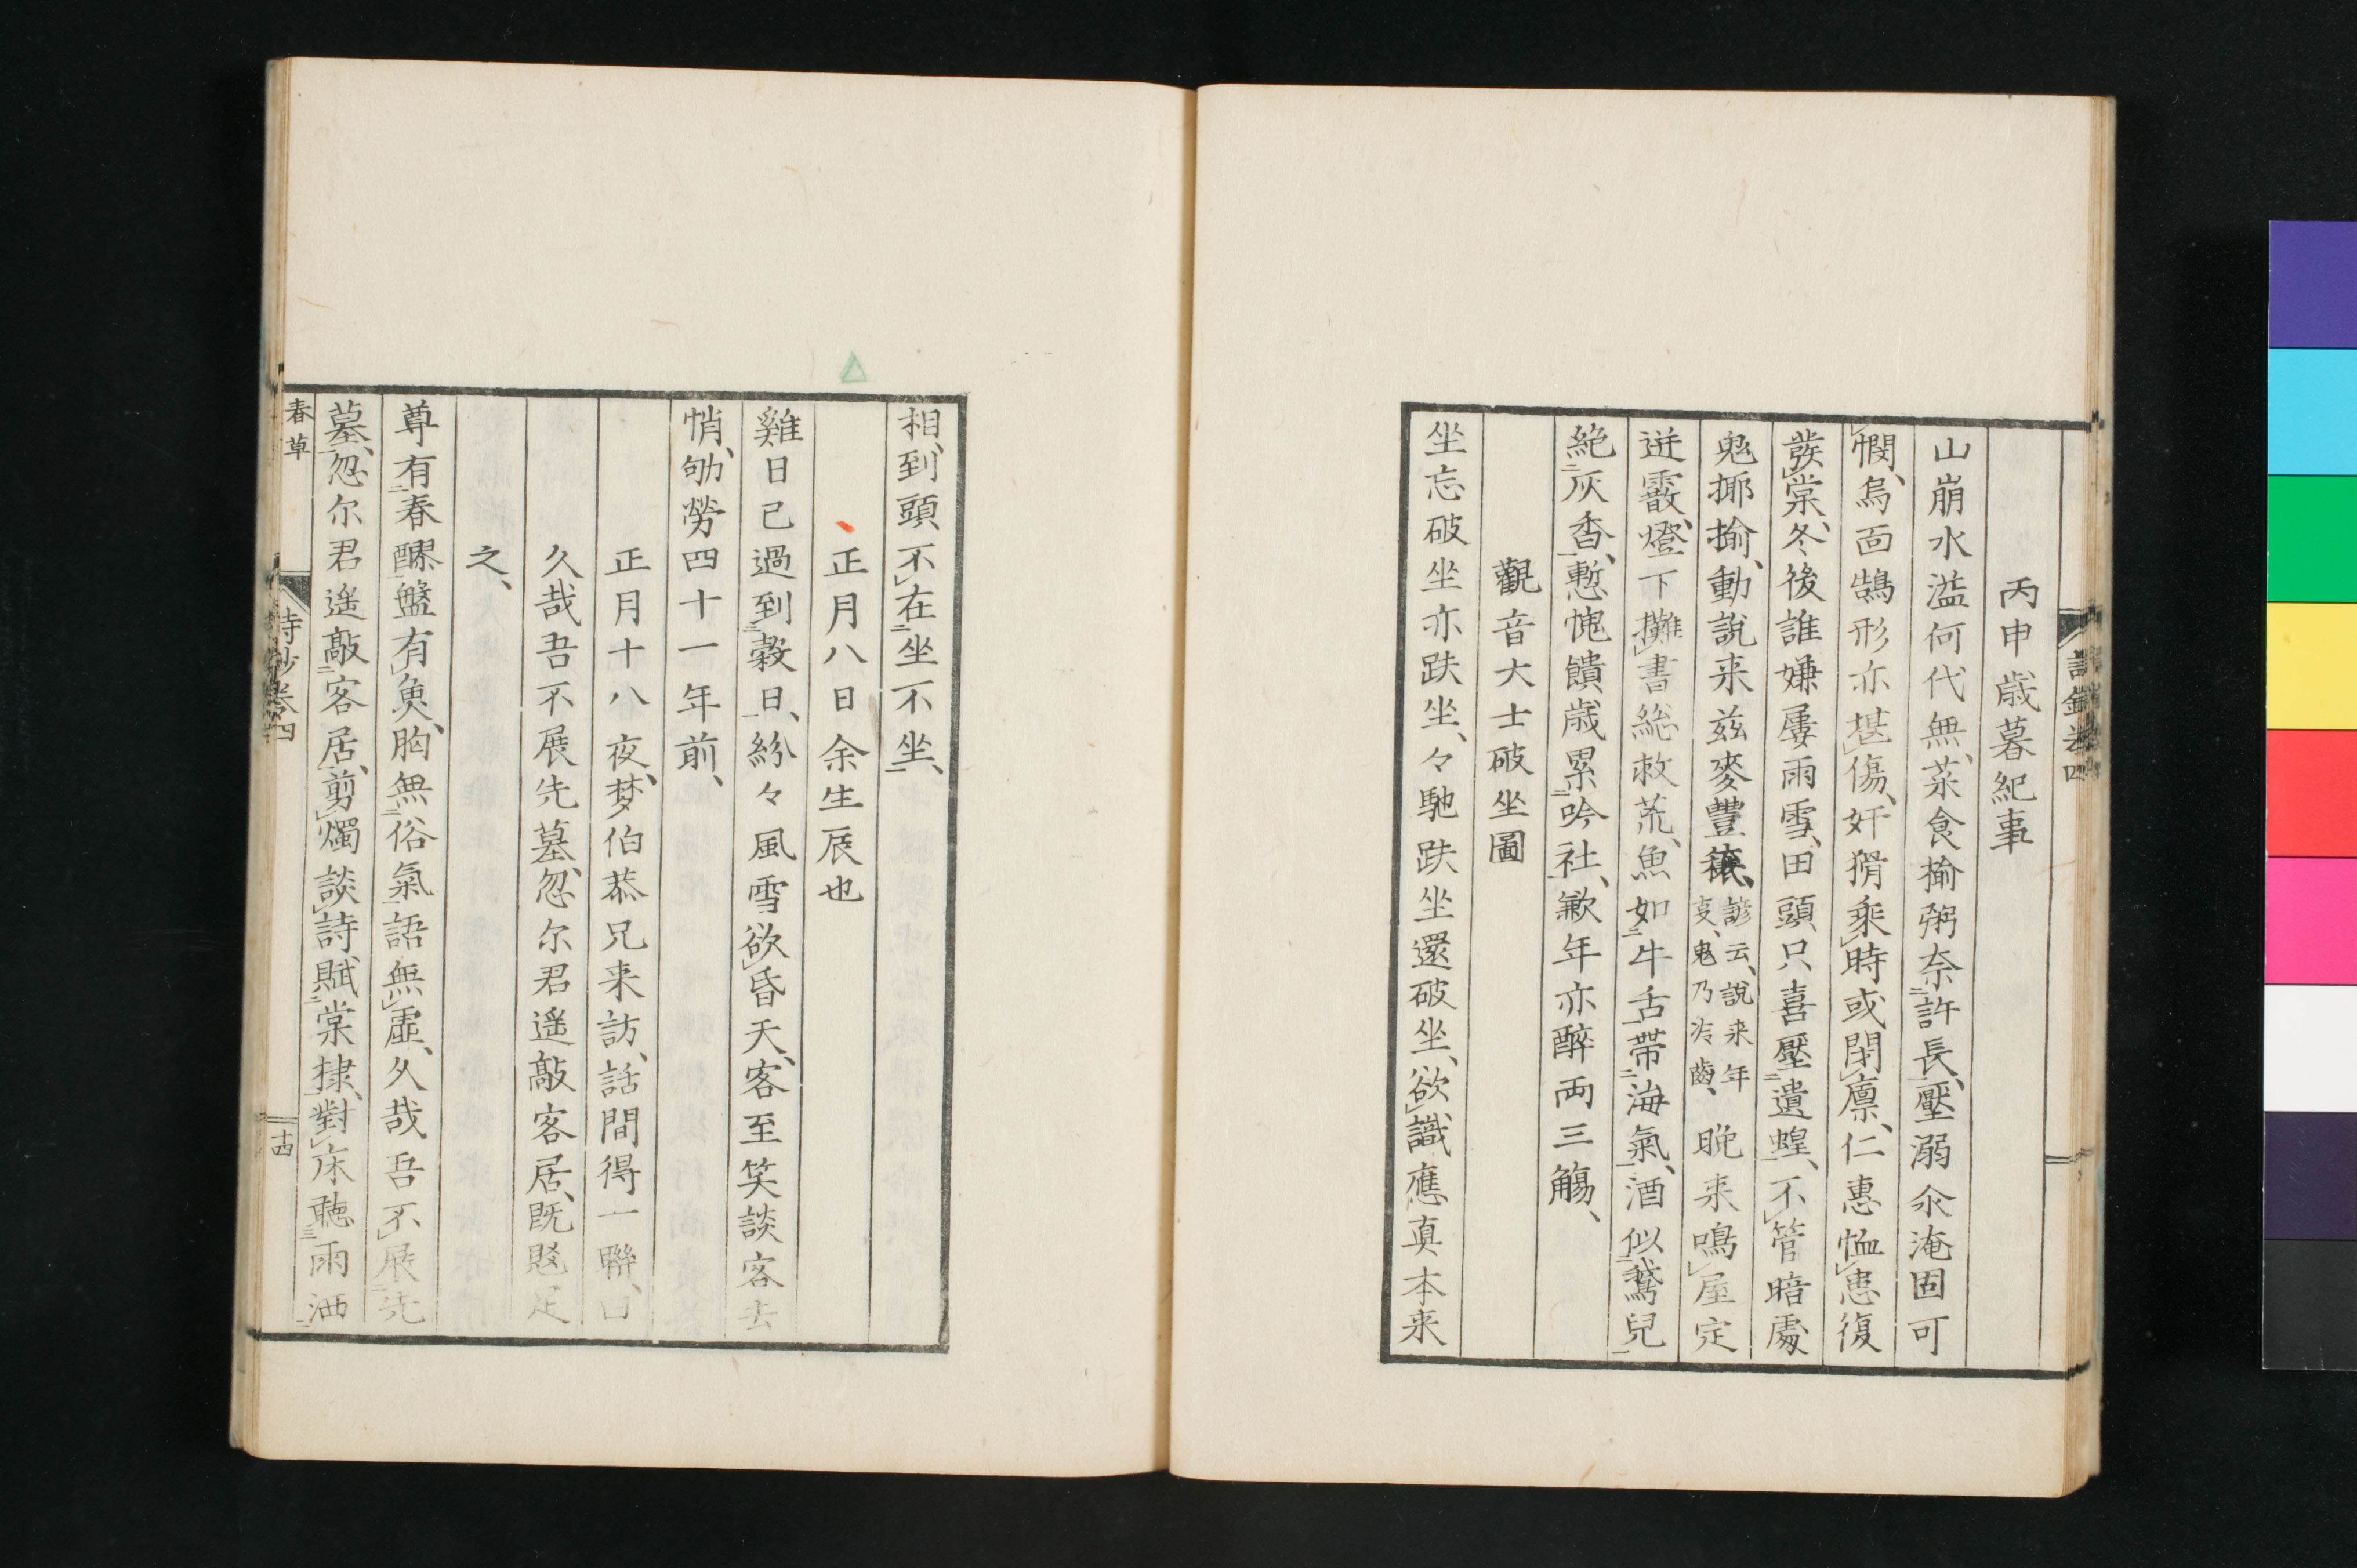 丙申歳暮紀事
山崩水溢何代無、菜食揄粥奈許長、壓溺氽淹固可
憫、烏面鵠形亦堪傷、奸猾乘時或閉廩、仁惠恤患復
發棠、冬後誰嫌屡雨雪、田頭只喜壓遺蝗、不管暗處
鬼揶揄、動説来玆麥豐穰、諺云、説来年
支、鬼乃冷齒、晩来鳴屋定
迸霰、燈下攤書総救荒、魚如牛舌帶海氣、酒似鵞兒
絶灰香、慙愧饋歳累吟社、歉年亦醉両三觴、
觀音大士破坐圖
坐忘破坐亦趺坐、々馳趺坐還破坐、欲識應真本来
詩鈔卷四
相、到頭不在坐不坐、
正月八日余生辰也
雞日已過到穀日、紛々風雪欲昏天、客至笑談客去
悄、劬勞四十一年前、
正月十八夜、梦伯恭兄来訪、話間得一聯、曰
久哉吾不展先墓、忽尓君遙敲客居、既覺足
之、
尊有春醪盤有魚、胸無俗氣語無虛、久哉吾不展先
墓、忽尓君遙敲客居、剪燭談詩賦棠棣、對床聽雨洒
春草
詩鈔卷四
十四